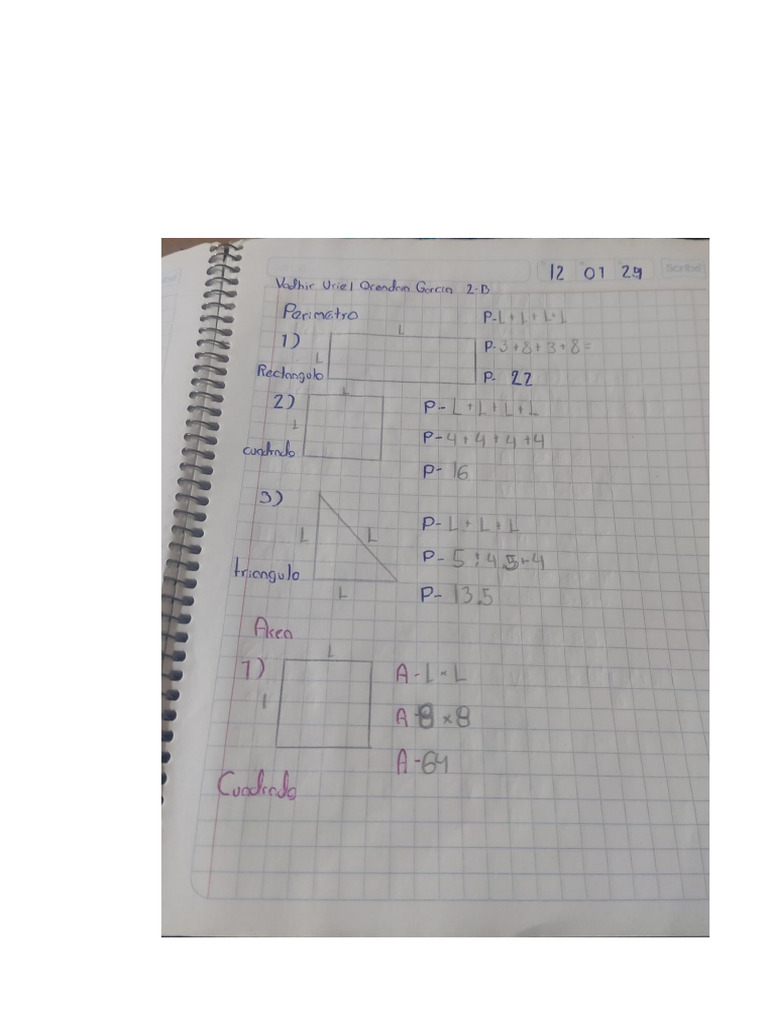 12 01 24
Scribe
Vadhir Uriel Orendan Garcia 2-B
Perimetro
P-L+L+L+L
L
1)
L
P-3+8+3+8=
Rectangulo
P- 22
L
2)
P-L+L+L+L
L
P-4+4+4+4
cuadrado
P-16
3)
P-L+L+L
L
L
P-5+4.5+4
triangulo
L
P-13.5
Area
L
1)
A-L×L
l
A-8×8
A-64
Cuadrado